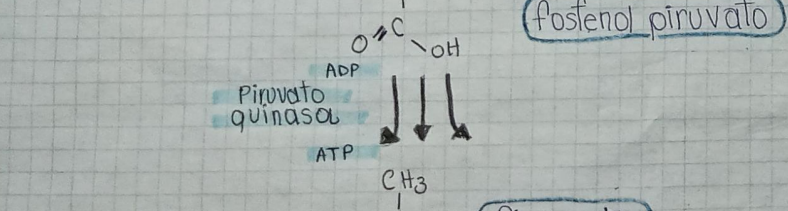 fosfenol piruvato
O=C
OH
ADP
Piruvato
quinasa
ATP
CH3